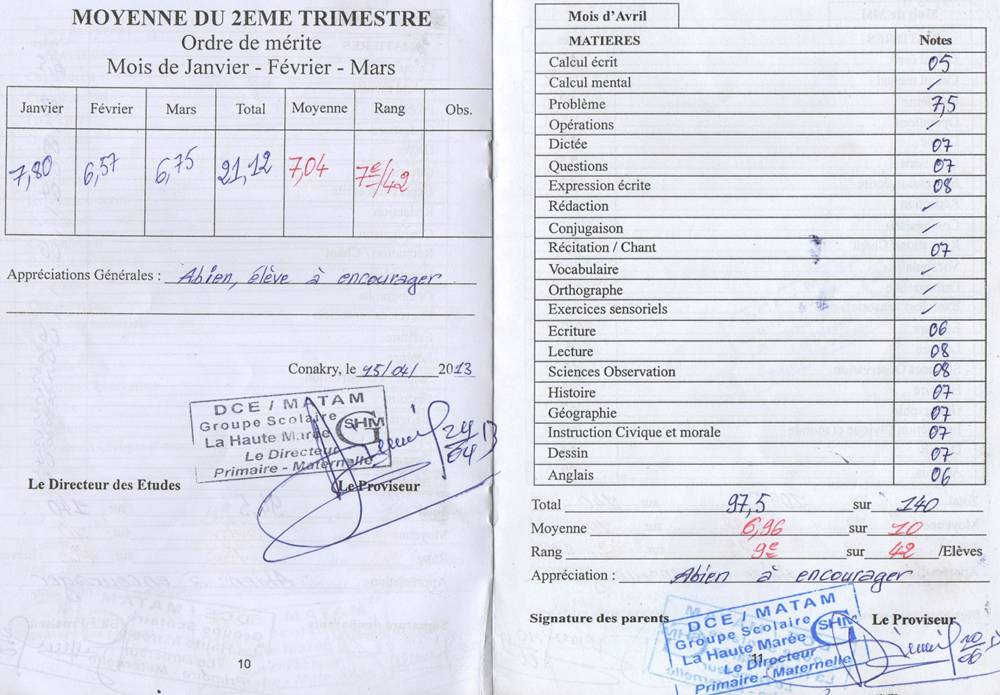 MOYENNE DU 2EME TRIMESTRE
Ordre de mérite
Mois de Janvier - Février - Mars
Janvier Février Mars Total Moyenne Rang Obs.
7,80 6,57 6,75 21,12 7,04 7e/42
Appréciations Générales : Abien, élève à encourager
Conakry, le 15/04/ 2013
DCE / MATAM
Groupe Scolaire
La Haute Marée
SHM
Le Directeur
Primaire - Maternelle
24
04 13
Le Directeur des Etudes Le Proviseur
10
Mois d'Avril
MATIERES Notes
Calcul écrit 05
Calcul mental
Problème 7,5
Opérations
Dictée 07
Questions 07
Expression écrite 08
Rédaction
Conjugaison
Récitation / Chant 07
Vocabulaire
Orthographe
Exercices sensoriels
Ecriture 06
Lecture 08
Sciences Observation 08
Histoire 07
Géographie 07
Instruction Civique et morale 07
Dessin 07
Anglais 06
Total 97,5 sur 140
Moyenne 6,96 sur 10
Rang 9e sur 42 /Elèves
Appréciation : Abien à encourager
Signature des parents Le Proviseur
DCE / MATAM
Groupe Scolaire
La Haute Marée
SHM
Le Directeur
Primaire - Maternelle
11